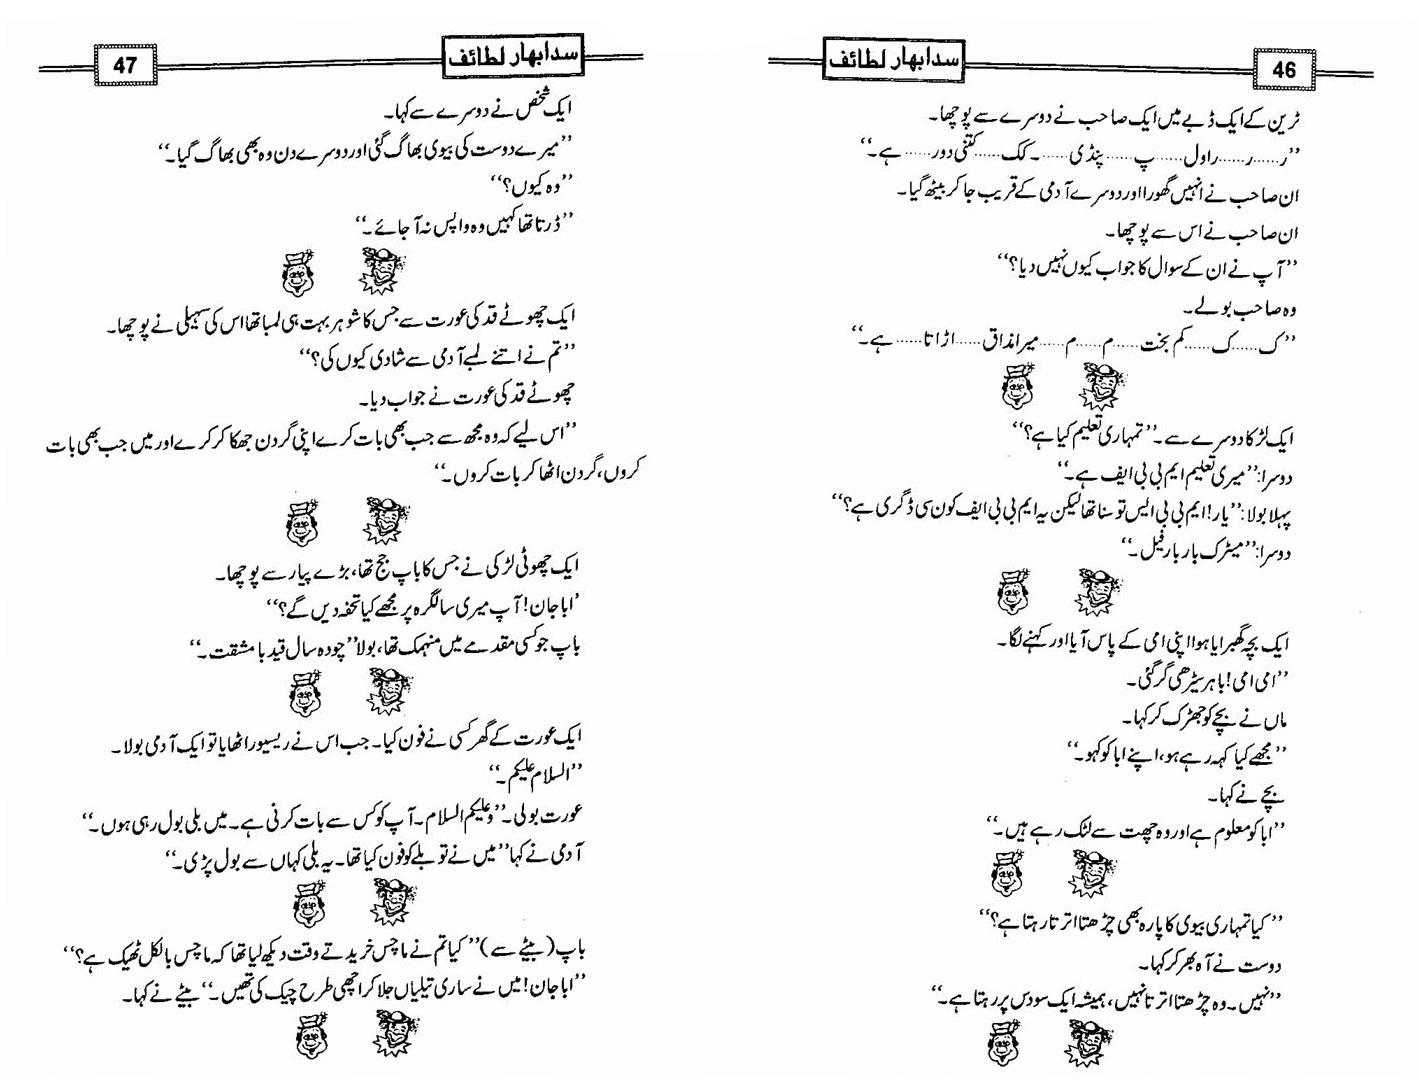 46
سدابہار لطائف
ٹرین کے ایک ڈبے میں ایک صاحب نے دوسرے سے پوچھا۔
’’ر......ر......راول......پ......پنڈی......۔کک......کتنی دور......ہے۔‘‘
ان صاحب نے انہیں گھورا اور دوسرے آدمی کے قریب جا کر بیٹھ گیا۔
ان صاحب نے اس سے پوچھا۔
’’آپ نے ان کے سوال کا جواب کیوں نہیں دیا؟‘‘
وہ صاحب بولے۔
’’ک......ک......کم بخت......م......م......میرا مذاق......اڑاتا......ہے۔‘‘
ایک لڑکا دوسرے سے۔’’تمہاری تعلیم کیا ہے؟‘‘
دوسرا:’’میری تعلیم ایم بی بی ایف ہے۔‘‘
پہلا بولا:’’یار! ایم بی بی ایس تو سنا تھا لیکن یہ ایم بی بی ایف کون سی ڈگری ہے؟‘‘
دوسرا:’’میٹرک بار بار فیل۔‘‘
ایک بچہ گھبرایا ہوا اپنی امی کے پاس آیا اور کہنے لگا۔
’’امی امی! باہر سیڑھی گر گئی۔
ماں نے بچے کو جھڑک کر کہا۔
’’مجھے کیا کہہ رہے ہو، اپنے ابا کو کہو۔‘‘
بچے نے کہا۔
’’ابا کو معلوم ہے اور وہ چھت سے لٹک رہے ہیں۔‘‘
’’کیا تمہاری بیوی کا پارہ بھی چڑھتا اترتا رہتا ہے؟‘‘
دوست نے آہ بھر کر کہا۔
’’نہیں۔ وہ چڑھتا اترتا نہیں، ہمیشہ ایک سو دس پر رہتا ہے۔‘‘
سدابہار لطائف
47
ایک شخص نے دوسرے سے کہا۔
’’میرے دوست کی بیوی بھاگ گئی اور دوسرے دن وہ بھی بھاگ گیا۔‘‘
’’وہ کیوں؟‘‘
’’ڈرتا تھا کہیں وہ واپس نہ آ جائے۔‘‘
ایک چھوٹے قد کی عورت سے جس کا شوہر بہت ہی لمبا تھا اس کی سہیلی نے پوچھا۔
’’تم نے اتنے لمبے آدمی سے شادی کیوں کی؟‘‘
چھوٹے قد کی عورت نے جواب دیا۔
’’اس لیے کہ وہ مجھ سے جب بھی بات کرے اپنی گردن جھکا کر کرے اور میں جب بھی بات
کروں، گردن اٹھا کر بات کروں۔‘‘
ایک چھوٹی لڑکی نے جس کا باپ جج تھا، بڑے پیار سے پوچھا۔
’ابا جان! آپ میری سالگرہ پر مجھے کیا تحفہ دیں گے؟‘‘
باپ جو کسی مقدمے میں منہمک تھا، بولا’’چودہ سال قید با مشقت۔‘‘
ایک عورت کے گھر کسی نے فون کیا۔ جب اس نے ریسیور اٹھایا تو ایک آدمی بولا۔
’’السلام علیکم۔‘‘
عورت بولی۔’’وعلیکم السلام۔ آپ کو کس سے بات کرنی ہے۔ میں بلی بول رہی ہوں۔‘‘
آدمی نے کہا’’میں نے تو بلے کو فون کیا تھا۔ یہ بلی کہاں سے بول پڑی۔‘‘
باپ (بیٹے سے)’’کیا تم نے ماچس خریدتے وقت دیکھ لیا تھا کہ ماچس بالکل ٹھیک ہے؟‘‘
’’ابا جان! میں نے ساری تیلیاں جلا کر اچھی طرح چیک کی تھیں۔‘‘ بیٹے نے کہا۔